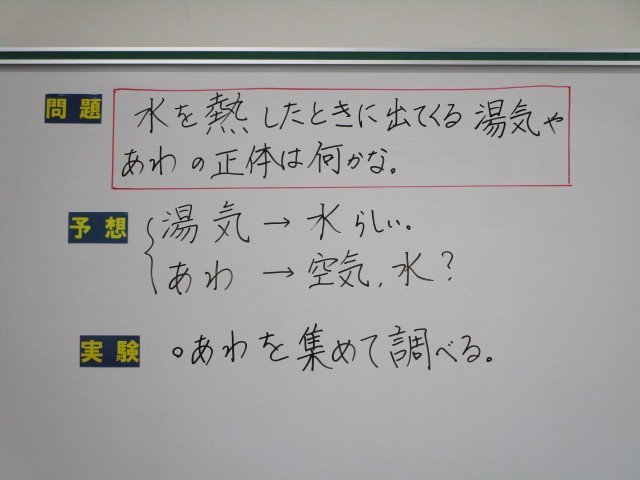 問題 水を熱したときに出てくる湯気や
あわの正体は何かな。
予想 湯気→水らしい。
あわ→空気,水?
実験 ○あわを集めて調べる。